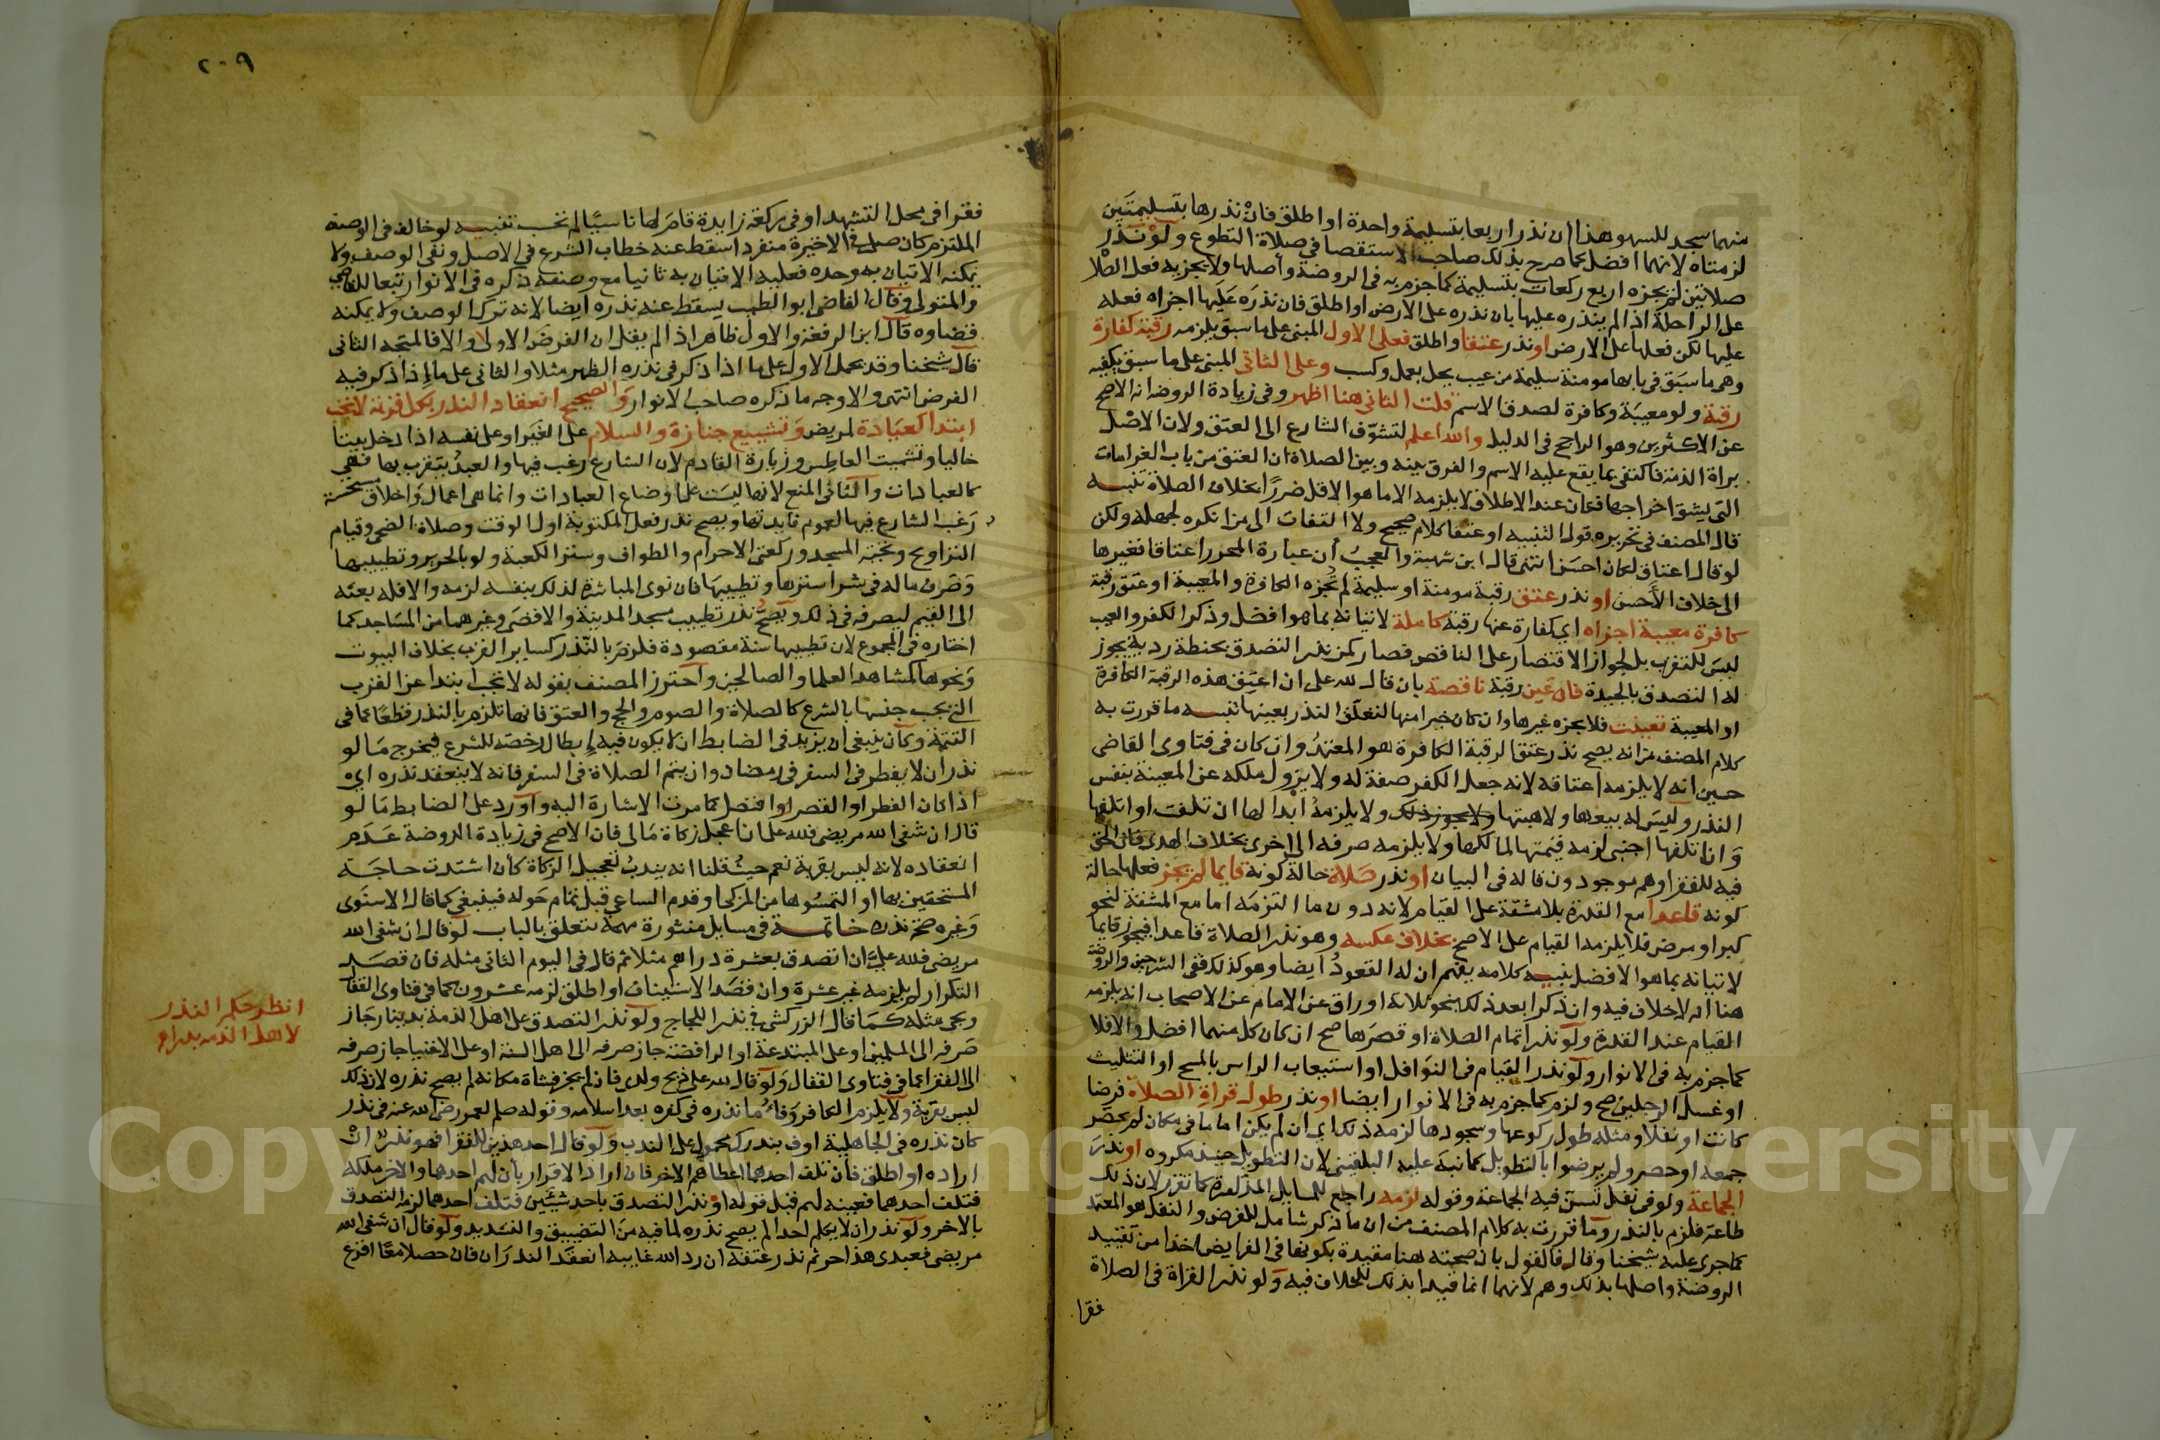 منهما سجد للسهو وهذا ان نذر اربعا بتسليمة واحدة او اطلق فان نذرها بتسليمتين
لزمتاه لانهما افضل كما صرح بذلك صاحب الاستقصا في صلاة التطوع ولو نذر
صلاتين لم يجزه اربع ركعات بتسليمة كما جزم به في الروضة وأصلها ولا يجزيه فعل الصلاة
على الراحلة اذا لم ينذره عليها بان نذره على الارض او اطلق فان نذره عليها اجزاه فعله
عليها لكن فعلها على الارض او نذر عتقا واطلق فعلى الاول المبني على ما سبق يلزمه رقبة كفارة
وهى ما سبق في بابها مومنة سليمة من عيب يخل بعمل وكسب وعلى الثاني المبني على ما سبق يكفيه
رقبة ولو معيبة وكافرة لصدق الاسم قلت الثاني هنا اظهر وفي زيادة الروضة انه الاصح
عن الاكثرين وهو الراجح في الدليل والله اعلم لتشوف الشارع الى العتق ولان الاصل
براة الذمة فاكتفي بما يقع عليه الاسم والفرق بينه وبين الصلاة ان العتق من باب الغرامات
التي يشق اخراجها فكان عند الاطلاق لا يلزمه الا ما هو الاقل ضررا بخلاف الصلاة تنبيه
قال المصنف في تحريره قول التنبيه او عتقا كلام صحيح ولا التفات الى من انكره لجهله ولكن
لو قال اعتاق لكان احسن انتهى قال ابن شهبة والعجب ان عبارة المحرر اعتاقا فغيرها
الى خلاف الأحسن او نذر عتق رقبة مومنة او سليمة لم تجزه الكافرة والمعيبة او عتق رقبة
كافرة معيبة اجزاه اي كفارة عنها رقبة كاملة لاتيانه بما هو افضل وذكر الكفر والعيب
ليس للتقرب بل لجواز الاقتصار على الناقص فصار كمن نذر التصدق بحنطة ردية يجوز
له التصدق بالجيدة فان عين رقبة ناقصة بان قال لله على ان اعتق هذه الرقبة الكافرة
او المعيبة تعينت فلا يجزه غيرها وان كان خيرا منها لتعلق النذر بعينها تنبيه ما قررت به
كلام المصنف من انه يصح نذر عتق الرقبة الكافرة هو المعتمد وان كان في فتاوى القاضي
حسين انه لا يلزمه اعتاقه لانه جعل الكفر صفة له ولا يزول ملكه عن المعينة بنفس
النذر وليس له بيعها ولا هبتها ولا يلزمه ابدالها ان تلفت او اتلفها
وان اتلفها اجنبي لزمه قيمتها لمالكها ولا يلزمه صرفه الى اخرى بخلاف الهدى فان الحق
فيه للفقرا وهم موجودون قاله في البيان او نذر صلاة حالة كونه قايما لم يجز فعلها حالة
كونه قاعدا مع القدرة بلا مشقة على القيام لانه دون ما التزمه اما مع المشقة لنحو
كبر او مرض فلا يلزمه القيام على الاصح بخلاف عكسه وهو نذر الصلاة قاعدا فيجوز قايما
لاتيانه بما هو الافضل تنبيه كلامه يفهم ان له القعود ايضا وهو كذلك ففي الشرحين والروضة
هنا انه لا خلاف فيه وان ذكرا بعد ذلك بنحو ثلاثة اوراق عن الامام عن الاصحاب انه يلزمه
القيام عند القدرة ولو نذر اتمام الصلاة او قصرها صح ان كان كل منهما افضل والا فلا
كما جزم به في الانوار ولو نذر القيام في النوافل او استيعاب الراس بالمسح او التثليث
او غسل الرجلين صح ولزم كما جزم به في الانوار ايضا او نذر طول قراة الصلاة فرضا
كانت او نفلا ومثله طول ركوعها وسجودها لزمه ذلك اي ان لم يكن اماما في مكان لم يحصر
جمعه او حصر ولم يرضوا بالتطويل كما نبه عليه البلقيني لان التطويل حينئذ مكروه او نذر
الجماعة ولو في نفل تسن فيه الجماعة وقوله لزمه راجع للمسايل المذكورة كما تقرر لان ذلك
طاعة فلزم بالنذر وما قررت به كلام المصنف من ان ما ذكر شامل للفرض والنفل هو المعتمد
كما جرى عليه شيخنا وقال فالقول بان صحته هنا مقيدة بكونها في الفرايض اخذا من تقييد
الروضة واصلها بذلك وهم لانهما انما قيدا بذلك للخلاف فيه ولو نذر القراة في الصلاة
فقرا
٢٠٩
فقرا في محل التشهد او في ركعة زايدة قام لها ناسيا لم تحسب تنبيه لو خالف في الوصف
الملتزم كان صلى في الاخيرة منفردا سقط عنه خطاب الشرع في الاصل وبقي الوصف ولا
يمكنه الاتيان به وحده فعليه الاتيان به ثانيا مع وصفه ذكره في الانوار تبعا للقاضي
والمتولي وقال القاضي ابو الطيب يسقط عنه نذره ايضا لانه ترك الوصف ولا يمكنه
قضاوه قال ابن الرفعة والاول ظاهر اذا لم يقل ان الفرض الاولى والا فالمتجه الثاني
قال شيخنا وقد يحمل الاول على ما اذا ذكر في نذره الظهر مثلا والثاني على ما اذا ذكر فيه
الفرض انتهى والاوجه ما ذكره صاحب الانوار والصحيح انعقاد النذر بكل قربة لا تجب
ابتدا كعيادة لمريض وتشييع جنازة والسلام على الغير او على نفسه اذا دخل بيتا
خاليا وتشميت العاطس وزيارة القادم لان الشارع رغب فيها والعبد يتقرب بها فهي
كالعبادات والثاني المنع لانها ليست على اوضاع العبادات وانما هي اعمال واخلاق مستحسنة
رغب الشارع فيها لعموم فايدتها ويصح نذر فعل المكتوبة اول الوقت وصلاة الضحى وقيام
التراويح وتحية المسجد وركعتي الاحرام والطواف وستر الكعبة ولو بالحرير وتطييبها
وصرف ماله في شرا سترها وتطييبها فان نوى المباشرة لذلك بنفسه لزمه والا فله بعثه
الى القيم ليصرفه في ذلك ويصح نذر تطييب مسجد المدينة والاقصى وغيرهما من المساجد كما
اختاره في المجموع لان تطييبها سنة مقصودة فلزم بالنذر كساير القرب بخلاف البيوت
ونحوها كمشاهد العلما والصالحين واحترز المصنف بقوله لا تجب ابتدا عن القرب
التي يجب جنسها بالشرع كالصلاة والصوم والحج والعتق فانها تلزم بالنذر قطعا كما في
التتمة وكان ينبغي ان يزيد في الضابط ان لا يكون فيه ابطال رخصة للشرع فيخرج ما لو
نذر ان لا يفطر في السفر في رمضان وان يتم الصلاة في السفر فانه لا ينعقد نذره اي
اذا كان الفطر او القصر افضل كما مرت الاشارة اليه واورد على الضابط ما لو
قال ان شفى الله مريضي فلله على ان اعجل زكاة مالي فان الاصح في زيادة الروضة عدم
انعقاده لانه ليس بقربة نعم حيث قلنا انه يندب تعجيل الزكاة كأن اشتدت حاجة
المستحقين بها او التمسوها من المزكي او قدم الساعي قبل تمام حوله فينبغي كما قال الاسنوى
وغيره صحة نذره خاتمة في مسايل منثورة مهمة تتعلق بالباب لو قال ان شفى الله
مريضي فلله علي ان اتصدق بعشرة دراهم مثلا ثم قال في اليوم الثاني مثله فان قصد
التكرار لم يلزمه غير عشرة وان قصد الاستيناف او اطلق لزمه عشرون كما في فتاوى القفال
ويجي مثله كما قال الزركشي في نذر اللجاج ولو نذر التصدق على اهل الذمة بدينار جاز
صرفه الى المسلمين او على المبتدعة او الرافضة جاز صرفه الى اهل السنة او على الاغنيا جاز صرفه
الى الفقرا كما في فتاوى القفال ولو قال لله علي ذبح ولدى فان لم يجز فشاة مكانه لم يصح نذره لان ذلك
ليس بقربة ولا يلزم الكافر وفا ما نذره في كفره بعد اسلامه وقوله صلعم لعمر رضي الله عنه في نذر
كان نذره في الجاهلية اوف بنذرك محمول على الندب ولو قال احد هذين للفقرا فهو نذر ان
اراده او اطلق فان تلف احدهما اعطاهم الاخر فان اراد الاقرار بأن لهم احدهما والاخر ملكه
فتلف احدهما فعينه لهم قبل قوله او نذر التصدق باحد شيئين فتلف احدهما لزمه التصدق
بالاخر ولو نذر ان لا يكلم احدا لم يصح نذره لما فيه من التضييق والتشديد ولو قال ان شفى الله
مريضي فعبدى هذا حر ثم نذر عتقه ان رد الله غايبه انعقد النذران فان حصلا معا اقرع
انظر حكم النذر
لاهل الذمة بدراهم